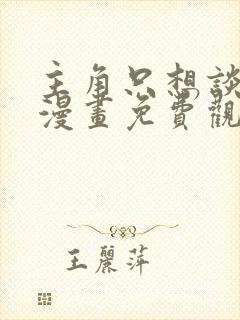 主角只想談
漫畫免費觀
王麗萍